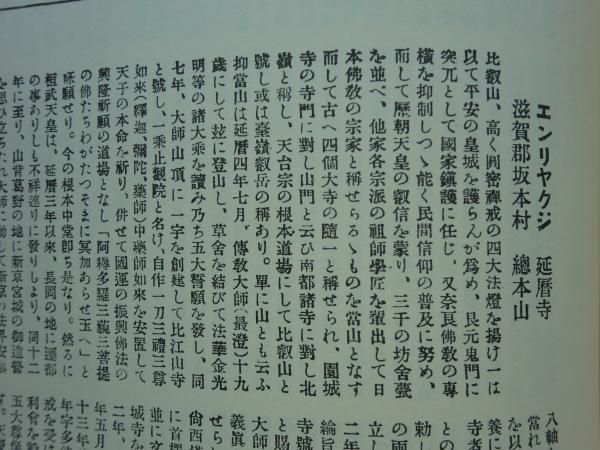 エンリヤクジ 延曆寺
滋賀郡坂本村 總本山
比叡山、高く圓密禪戒の四大法燈を揚げ一は
以て平安の皇城を護らんが爲め、艮元鬼門に
突兀として國家鎭護に任じ、又奈良佛敎の專
橫を抑制しつゝ能く民間信仰の普及に努め、
而して歷朝天皇の叡信を蒙り、三千の坊舍甍
を並べ、他家各宗派の祖師學匠を輩出して日
本佛敎の宗家と稱せらるゝものを當山となす
而して古へ四個大寺の隨一と稱せられ、園城
寺の寺門に對し山門と云ひ南都諸寺に對し北
嶺と稱し、天台宗の根本道場にして比叡山と
號し或は臺嶽叡岳の稱あり。單に山とも云ふ
抑當山は延曆四年七月、傳敎大師(最澄)十九
歲にして玆に登山し、草舍を結びて法華金光
明等の諸大乘を讀み乃ち五大誓願を發し、同
七年、大師山頂に一宇を創建して比江山寺
と號し、一乘止觀院と名け、自作一刀三禮三尊
如來(釋迦、彌陀、藥師)中藥師如來を安置して
天子の本命を祈り、併せて國運の振興佛法の
興隆祈願の道場となし「阿耨多羅三藐三菩提
の佛たちわがたつそまに冥加あらせ玉へ」と
咏願せり。今の根本中堂卽ち是なり。然るに
桓武天皇は、延曆三年以來、長岡の地に遷都
の事ありしも不祥遇りに發りしより、同十二
年に至り、山背葛野の地に新京宮城の御造營
を思ひ立ちたれ大師に勅して新京の
八軸
當れ
を以
養に
寺者
との
勅し
の両
立し
二年
論旨
と賜
大師
寺號
義眞
せら
尙西
に首
並に
城寺
二年、
年五月
十三年
年字多
戒を受
利會を
五大尊
す。